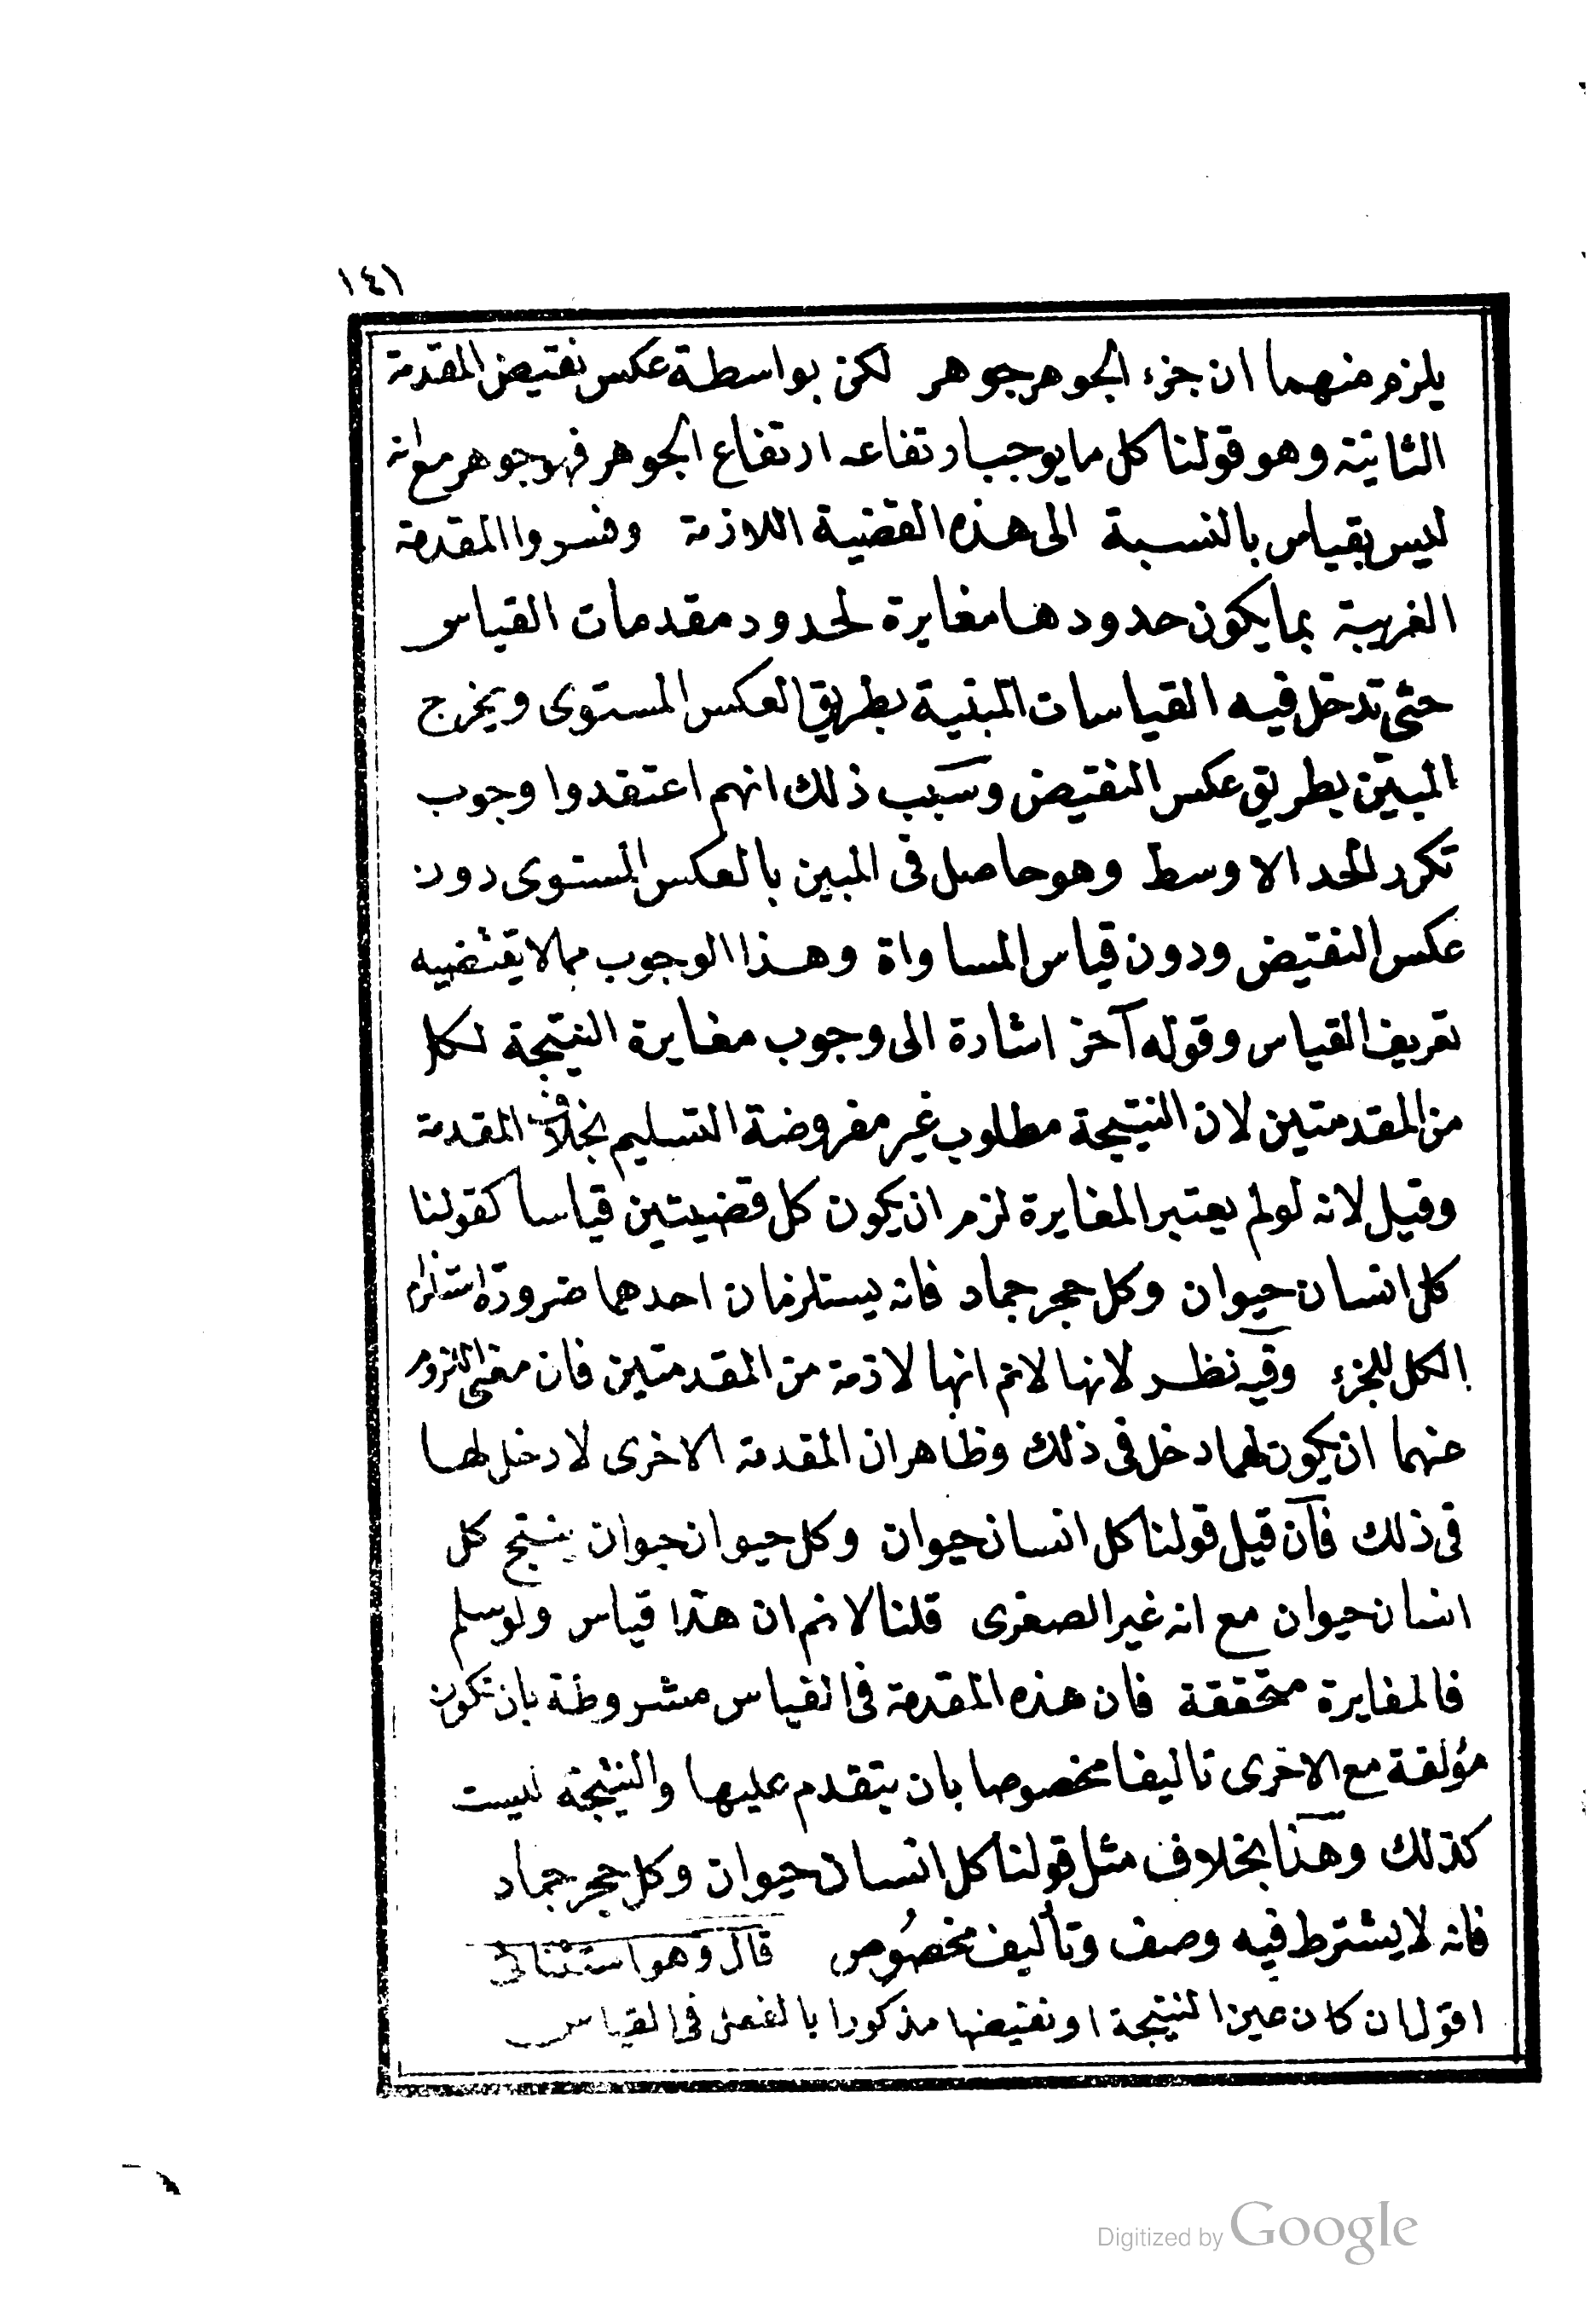 ١٤١
يلزم منهما ان جزء الجوهر جوهر لكن بواسطة عكس نقيض المقدمة
الثانية وهو قولنا كل ما يوجب ارتفاعه ارتفاع الجوهر فهو جوهر مع انه
ليس بقياس بالنسبة الى هذه القضية اللازمة وفسروا المقدمة
الغريبة بما يكون حدودها مغايرة لحدود مقدمات القياس
حتى تدخل فيه القياسات المبنية بطريق العكس المستوى ويخرج
المبين بطريق عكس النقيض وسبب ذلك انهم اعتقدوا وجوب
تكرر الحد الاوسط وهو حاصل فى المبين بالعكس المستوى دون
عكس النقيض ودون قياس المساواة وهذا الوجوب مما لا يقتضيه
تعريف القياس وقوله آخر اشارة الى وجوب مغايرة النتيجة لكل
من المقدمتين لان النتيجة مطلوب غير مفروضة التسليم بخلاف المقدمة
وقيل لانه لو لم يعتبر المغايرة لزم ان يكون كل قضيتين قياسا كقولنا
كل انسان حيوان وكل حجر جماد فانه يستلزمان احدهما ضرورة استلزام
الكل للجزء وفيه نظر لانها لانم انها لازمة من المقدمتين فان معنى اللزوم
منهما ان يكون لهما دخل فى ذلك وظاهر ان المقدمة الاخرى لا دخل لها
فى ذلك فان قيل قولنا كل انسان حيوان وكل حيوان حيوان ينتج كل
انسان حيوان مع انه غير الصغرى قلنا لانم ان هذا قياس ولو سلم
فالمغايرة متحققة فان هذه المقدمة فى القياس مشروطة بان تكون
مؤلفة مع الاخرى تاليفا مخصوصا بان يتقدم عليها والنتيجة ليست
كذلك وهذا بخلاف مثل قولنا كل انسان حيوان وكل حجر جماد
فانه لا يشترط فيه وصف وتأليف مخصوص قال وهو استثنائى
اقول ان كان عين النتيجة او نقيضها مذكورا بالفعل فى القياس
Digitized by Google